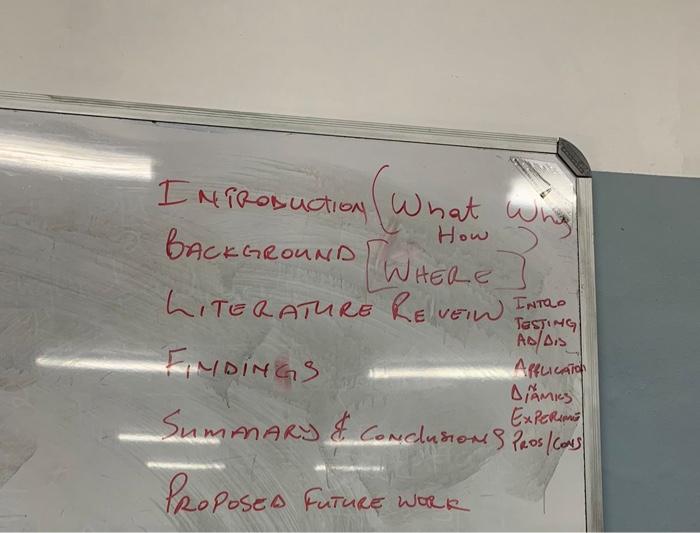 INTRODUCTION (What Why
How )
BACKGROUND [WHERE]
LITERATURE REVEIW
FINDINGS
SUMMARY & CONCLUSIONS
PROPOSED FUTURE WORK
INTRO
TESTING
AD/DIS
APPLICATION
DÑAMICS
EXPERIME
PROS/CONS